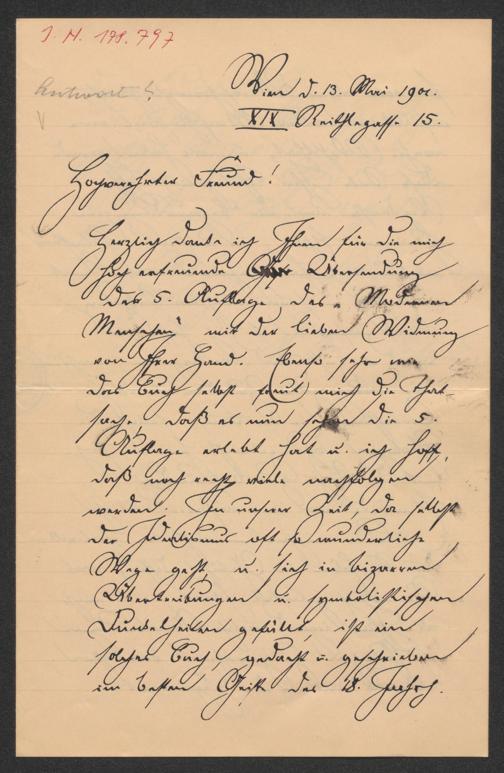 J. N. 198.797
Antwort
Wien d. 13. Mai 1901.
XIX Reithlegasse 15.
Hochverehrter Freund!
Herzlich danke ich Ihnen für die mich
hoch erfreuende Übersendung
der 5. Auflage des „Modernen
Menschen" mit der lieben Widmung
von Ihrer Hand. Ebenso sehr wie
das Buch selbst freut mich die That-
sache, daß es nun schon die 5.
Auflage erlebt hat u. ich hoffe,
daß noch recht viele nachfolgen
werden. In unserer Zeit, da selbst
der Idealismus oft so wunderliche
Wege geht, u. sich in bizarren
Übertreibungen u. symbolistischen
Dunkelheiten gefällt, ist ein
solches Buch, gedacht u. geschrieben
im besten Geiste des 18. Jahrh.